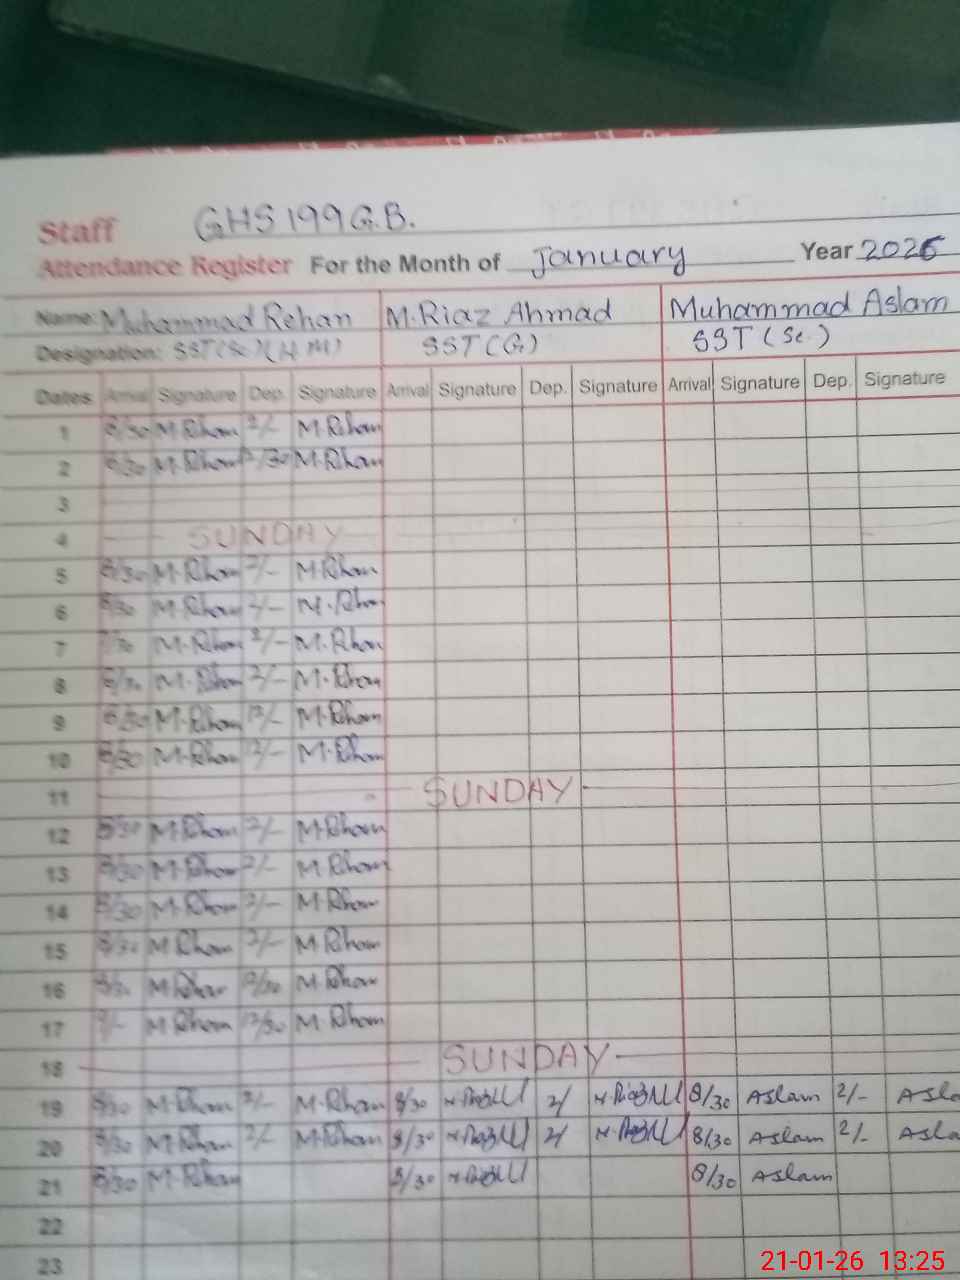 Staff GHS 199 G.B.
Attendance Register For the Month of January Year 2026
Name: Muhammad Rehan M. Riaz Ahmad Muhammad Aslam
Designation: SST (Sc) (H.M) SST (G) SST (Sc.)
Dates Arrival Signature Dep. Signature Arrival Signature Dep. Signature Arrival Signature Dep. Signature
1 8/30 M.Rhan 2/- M.Rhan
2 8/30 M.Rhan 12/30 M.Rhan
3
4 SUNDAY
5 8/30 M.Rhan 2/- M.Rhan
6 8/30 M.Rhan 2/- M.Rhan
7 M.Rhan 2/- M.Rhan
8 M.Rhan 2/- M.Rhan
9 8/30 M.Rhan 12/- M.Rhan
10 8/30 M.Rhan 12/- M.Rhan
11 SUNDAY
12 8/30 M.Rhan 2/- M.Rhan
13 8/30 M.Rhan 2/- M.Rhan
14 8/30 M.Rhan 2/- M.Rhan
15 8/30 M.Rhan 2/- M.Rhan
16 M.Rhan 12/30 M.Rhan
17 M.Rhan 12/30 M.Rhan
18 SUNDAY
19 8/30 M.Rhan 2/- M.Rhan 8/30 2/ 8/30 Aslam 2/- Asla
20 8/30 M.Rhan 2/- M.Rhan 8/30 2/ 8/30 Aslam 2/- Asla
21 8/30 M.Rhan 8/30 8/30 Aslam
22
23
21-01-26 13:25